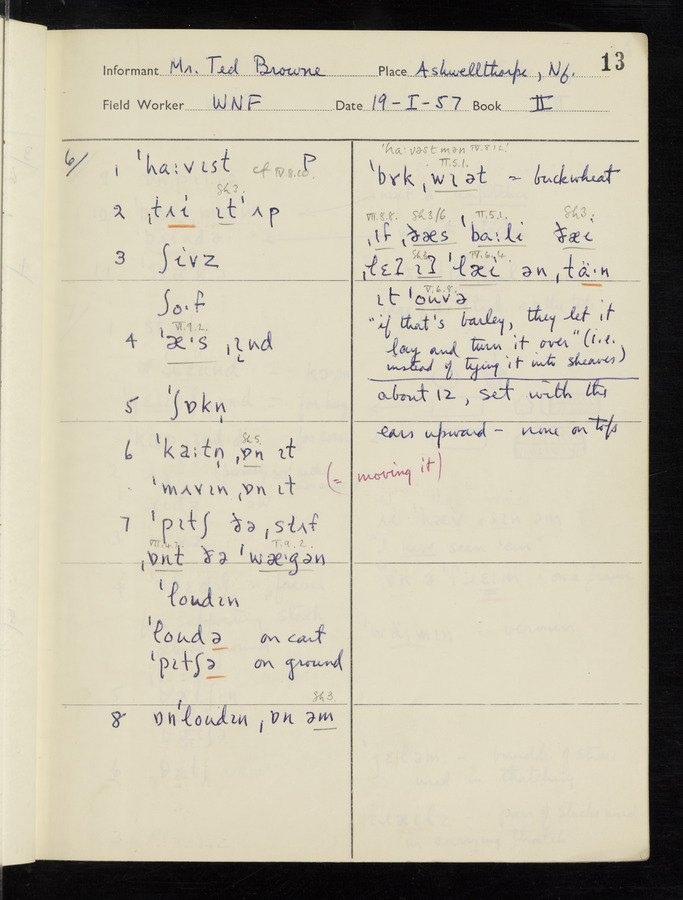 13
Informant Mr. Ted Browne Place Ashwellthorpe, Nf.
Field Worker WNF Date 19-I-57 Book II
6/ 1 ˈhaːvɪst cf IV.8.10. P
Sh.3.
2 ˌtʌi ɪt ˈʌp
3 ʃivz
ʃoˑf
VI.9.2.
4 ˈæˑs
5 ˈʃɒkn̩
Sh.5.
6 ˈkaːtn̩ ˌɒn ɪt
ˈmʌvɪn ˌɒn ɪt (= moving it)
7 ˈpɪtʃ ðə ˌstʌf
ˌɒnt ðə ˈwæˑgən
ˈloudɪn
ˈloudə on cart
ˈpɪtʃə on ground
Sh.3.
8 ɒn ˈloudɪn ˌɒn əm
ˈhaˑvəstmən IV.8.12!
II.5.1.
ˈbʌk ˌwɪət = buckwheat
VII.8.8. Sh.3/6 II.5.1. Sh.3.
ˌɪf ˌðæs ˈbaːli ðæi
ˈlæi ən ˌtäˑn
V.6.8.
ɪt ˈouvə
"if that's barley, they let it
lay and turn it over" (i.e.
instead of tying it into sheaves)
about 12, set with the
ears upward - none on tops